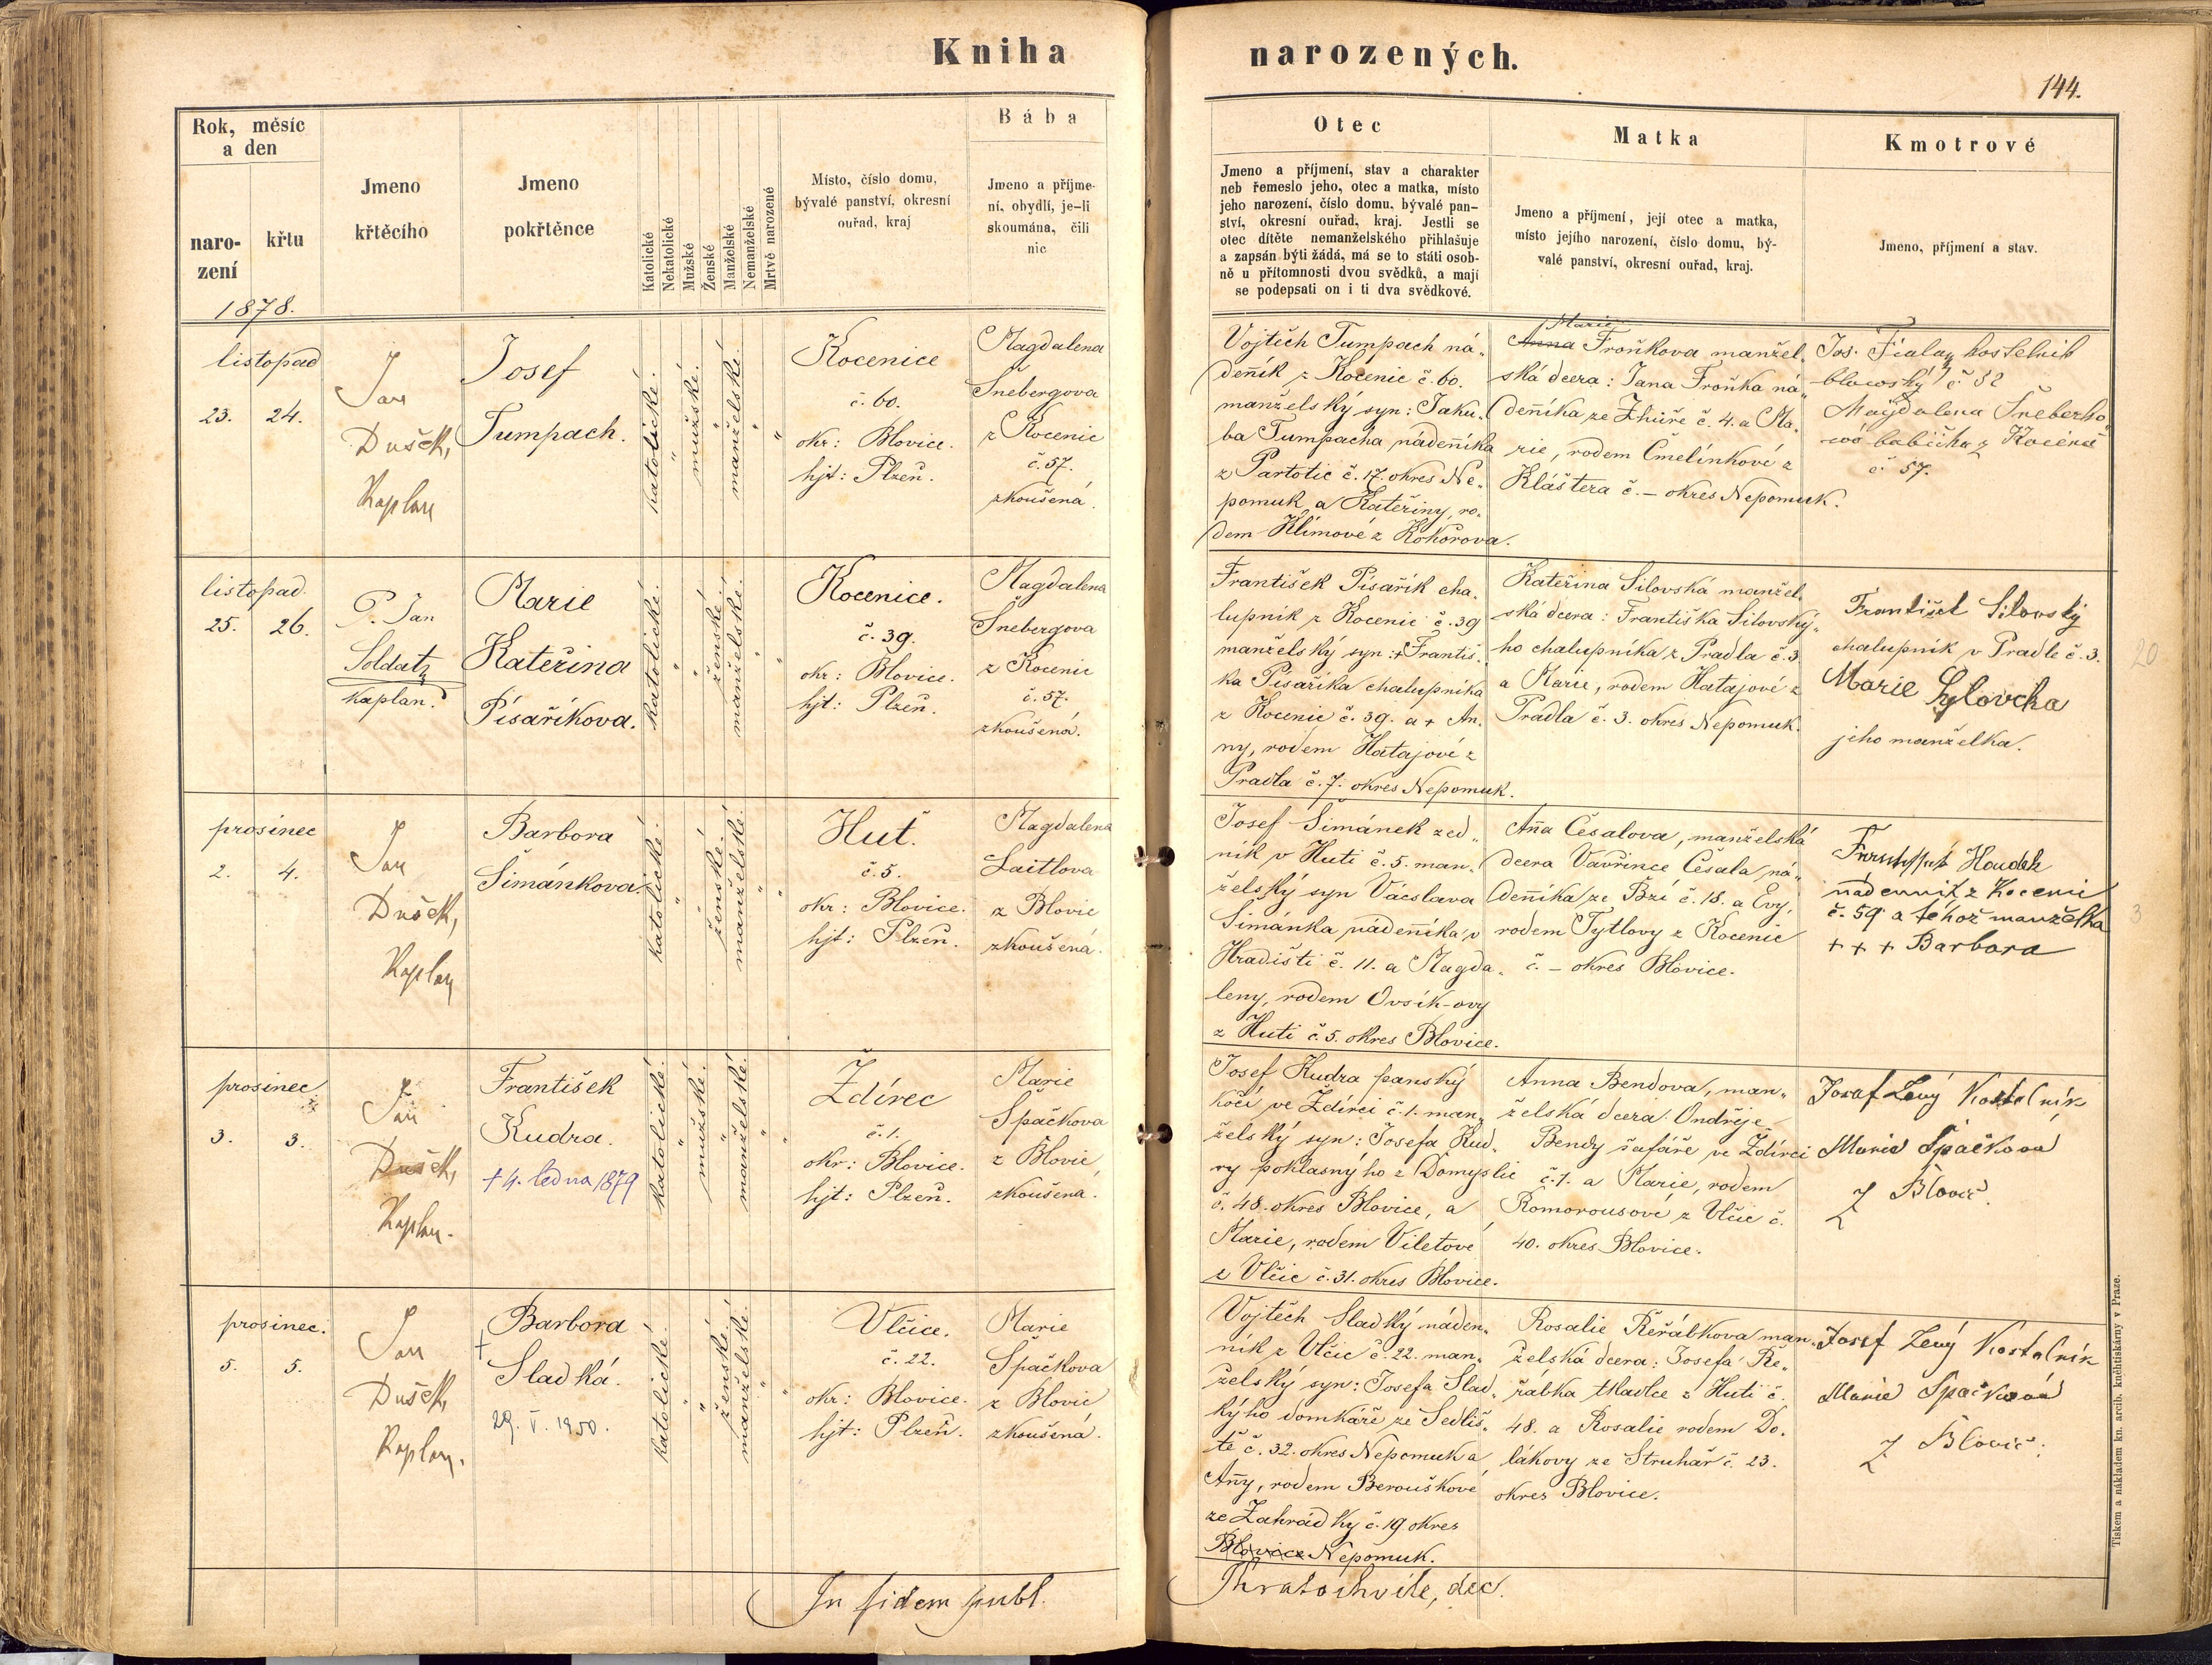 Kniha
narozených.
144.
Rok, měsíc
a den
naro-
zení
křtu
1878.
Jmeno
křtěcího
Jmeno
pokřtěnce
Katolické
Nekatolické
Mužské
Ženské
Manželské
Nemanželské
Mrtvě narozené
Místo, číslo domu,
bývalé panství, okresní
ouřad, kraj
Bába
Jmeno a příjme-
ní, obydlí, je-li
skoumána, čili
nic
Otec
Jmeno a příjmení, stav a charakter
neb řemeslo jeho, otec a matka, místo
jeho narození, číslo domu, bývalé pan-
ství, okresní ouřad, kraj. Jestli se
otec dítěte nemanželského přihlašuje
a zapsán býti žádá, má se to státi osob-
ně u přítomnosti dvou svědků, a mají
se podepsati on i ti dva svědkové.
Matka
Jmeno a příjmení, její otec a matka,
místo jejího narození, číslo domu, bý-
valé panství, okresní ouřad, kraj.
Kmotrové
Jmeno, příjmení a stav.
listopad
23. 24.
Jan
Dušek,
Kaplan
Josef
Tumpach.
katolické.
"
mužské.
"
manželské.
"
"
Kocenice
č. 60.
okr: Blovice.
hjt: Plzeň.
Magdalena
Šnebergova
z Kocenic
č. 57.
zkoušená.
Vojtěch Tumpach ná-
deňík z Kocenic č. 60.
manželský syn: Jaku-
ba Tumpacha nádeňíka
z Partotic č. 17. okres Ne-
pomuk a Kateřiny, ro-
dem Klímové z Kokořova.
Marie
Anna Froňkova manžel-
ská dcera: Jana Froňka ná-
deňíka ze Zhůře č. 4. a Ma-
rie, rodem Čmelínkové z
Kláštera č. – okres Nepomuk.
Jos. Fiala, kostelník
blovoský č 52
Magdalena Šneberho
vá babička z Kocenic
č 57.
listopad.
25. 26.
P. Jan
Soldat
kaplan.
Marie
Kateřina
Písaříkova.
katolické.
"
"
ženské.
manželské.
"
"
Kocenice.
č. 39.
okr: Blovice.
hjt: Plzeň.
Magdalena
Šnebergova
z Kocenic
č. 57.
zkoušená.
František Písařík cha-
lupník z Kocenic č. 39
manželský syn: + Františ-
ka Písaříka chalupníka
z Kocenic č. 39. a + An-
ny, rodem Hatajové z
Pradla č. 7. okres Nepomuk.
Kateřina Silovská manžel-
ská dcera: Františka Silovský-
ho chalupníka z Pradla č. 3
a Marie, rodem Hatajové z
Pradla č. 3. okres Nepomuk.
František Silovský
chalupník v Pradle č. 3.
Marie Sylovcka
jeho manželka.
20
prosinec
2. 4.
Jan
Dušek,
Kaplan
Barbora
Šimánkova.
katolické.
"
"
ženské.
manželské.
"
"
Huť.
č. 5.
okr: Blovice.
hjt: Plzeň.
Magdalena
Laitlova
z Blovic
zkoušená.
Josef Šimánek zed-
ník v Huti č. 5. man-
želský syn Vácslava
Šimánka nádeňíka v
Hradišti č. 11. a Magda-
leny, rodem Ovsík-ovy
z Huti č. 5. okres Blovice.
Aňa Česalova, manželská
dcera Vavřince Česala ná-
deňíka ze Brí č. 18. a Evy,
rodem Tytlovy z Kocenic
č. – okres Blovice.
František Houdek
nádenník z Kocenic
č. 59 a téhož manželka
+ + + Barbora
3
prosinec
3. 3.
Jan
Dušek,
Kaplan.
František
Kudra.
+ 4. ledna 1879
katolické.
"
mužské.
"
manželské.
"
"
Ždírec
č. 1.
okr: Blovice.
hjt: Plzeň.
Marie
Spačkova
z Blovic
zkoušená.
Josef Kudra panský
kočí ve Ždírci č. 1. man-
želský syn: Josefa Kud-
ry poklasnýho z Domyslic
č. 48. okres Blovice, a
Marie, rodem Viletové
z Vlčic č. 31. okres Blovice.
Anna Bendova, man-
želská dcera Ondřeje
Bendy šafáře ve Ždírci
č. 1. a Marie, rodem
Komorousové z Vlčic č.
40. okres Blovice.
Josef Levý Kostelník
Marie Špačková
z Blovic.
prosinec.
5. 5.
Jan
Dušek,
Kaplan.
Barbora
+ Sladká.
29. V. 1950.
katolické.
"
"
ženské.
manželské.
"
"
Vlčice.
č. 22.
okr: Blovice.
hjt: Plzeň.
Marie
Spačkova
z Blovic
zkoušená.
Vojtěch Sladký náden-
ník z Vlčic č. 22. man-
želský syn: Josefa Slad-
kýho domkáře ze Sedliš-
tě č. 32. okres Nepomuk a
Aňy, rodem Berouškové
ze Zahrádky č. 19 okres
Blovice Nepomuk.
Rosalie Řeřábkova man-
želská dcera: Josefa Ře-
řábka tkadlce z Huti č.
48. a Rosalie rodem Do-
lákovy ze Struhař č. 23.
okres Blovice.
Josef Levý Kostelník
Marie Špačková
z Blovic.
In fidem publ.
Jhratochvile, dec.
Tiskem a nákladem kn. arcib. knihtiskárny v Praze.